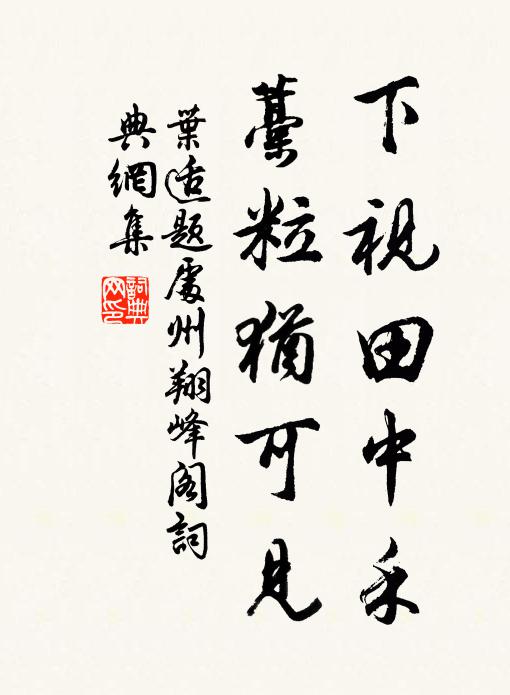 下視田中禾
藳粒猶可見
葉适題處州翔峰阁詞
典網集
詞典網印